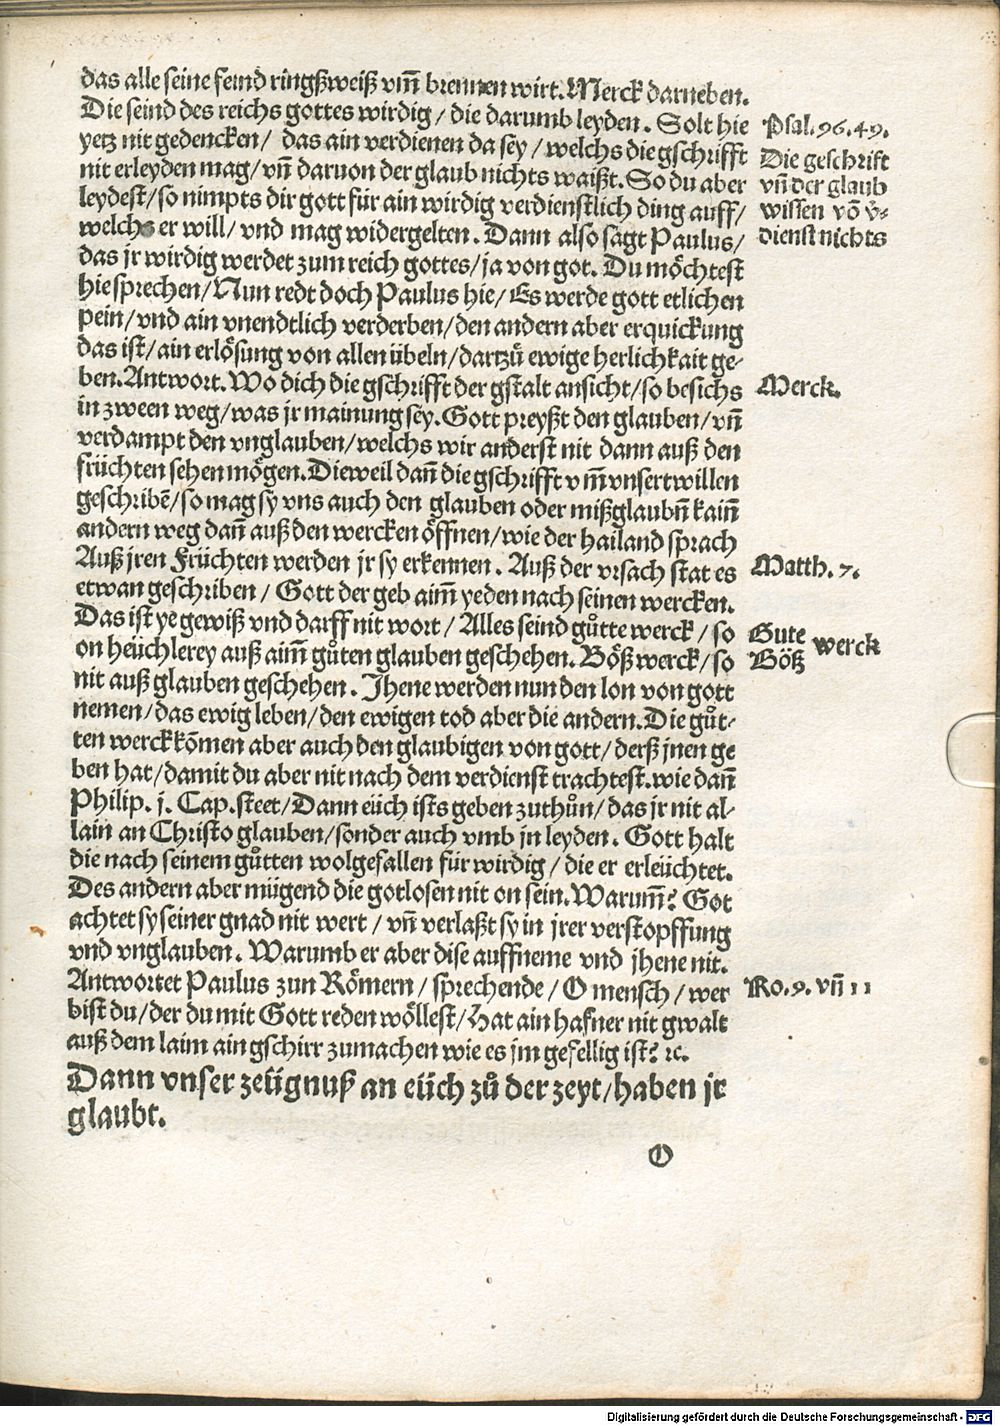 das alle seine feind ringßweiß vm̃ brennen wirt. Merck darneben.
Die seind des reichs gottes wirdig / die darumb leyden. Solt hie
yetz nit gedencken / das ain verdienen da sey / welchs die gschrifft
nit erleyden mag / vn̄ daruon der glaub nichts waißt. So du aber
leydest / so nimpts dir gott für ain wirdig verdienstlich ding auff /
welchs er will / vnd mag widergelten. Dann also sagt Paulus /
das jr wirdig werdet zum reich gottes / ja von got. Du möchtest
hie sprechen / Nun redt doch Paulus hie / Es werde gott etlichen
pein / vnd ain vnendtlich verderben / den andern aber erquickung
das ist / ain erlösung von allen übeln / dartzů ewige herlichkait ge-
ben. Antwort. Wo dich die gschrifft der gstalt ansicht / so besichs
in zween weg / was jr mainung sey. Gott preyßt den glauben / vn̄
verdampt den vnglauben / welchs wir anderst nit dann auß den
früchten sehen mögen. Dieweil dan̄ die gschrifft vm̃ vnsert willen
geschribē / so mag sy vns auch den glauben oder mißglaubn̄ kain̄
andern weg dan̄ auß den wercken öffnen / wie der hailand sprach
Auß jren Früchten werden jr sy erkennen. Auß der vrsach stat es
etwan geschriben / Gott der geb aim̄ yeden nach seinen wercken.
Das ist ye gewiß vnd darff nit wort / Alles seind gůtte werck / so
on heüchlerey auß aim̄ gůten glauben geschehen. Böß werck / so
nit auß glauben geschehen. Jhene werden nun den lon von gott
nemen / das ewig leben / den ewigen tod aber die andern. Die gůt-
ten werck kōmen aber auch den glaubigen von gott / derß jnen ge
ben hat / damit du aber nit nach dem verdienst trachtest. wie dan̄
Philip. j. Cap. steet / Dann eüch ists geben zuthůn / das jr nit al-
lain an Christo glauben / sonder auch vmb jn leyden. Gott halt
die nach seinem gůtten wolgefallen für wirdig / die er erleüchtet.
Des andern aber mügend die gotlosen nit on sein. Warum̄? Got
achtet sy seiner gnad nit wert / vn̄ verlaßt sy in jrer verstopffung
vnd vnglauben. Warumb er aber dise auffneme vnd jhene nit.
Antwortet Paulus zun Römern / sprechende / O mensch / wer
bist du / der du mit Gott reden wöllest / Hat ain hafner nit gwalt
auß dem laim ain gschirr zumachen wie es jm gefellig ist? ꝛc.
Dann vnser zeügnuß an eüch zů der zeyt / haben jr
glaubt.
O
Psal. 96. 49.
Die geschrift
vn̄ der glaub
wissen vō v̄-
dienst nichts
Merck.
Matth. 7.
Gute werck
Böß
Ro. 9. vn̄ 11
Digitalisierung gefördert durch die Deutsche Forschungsgemeinschaft - DFG